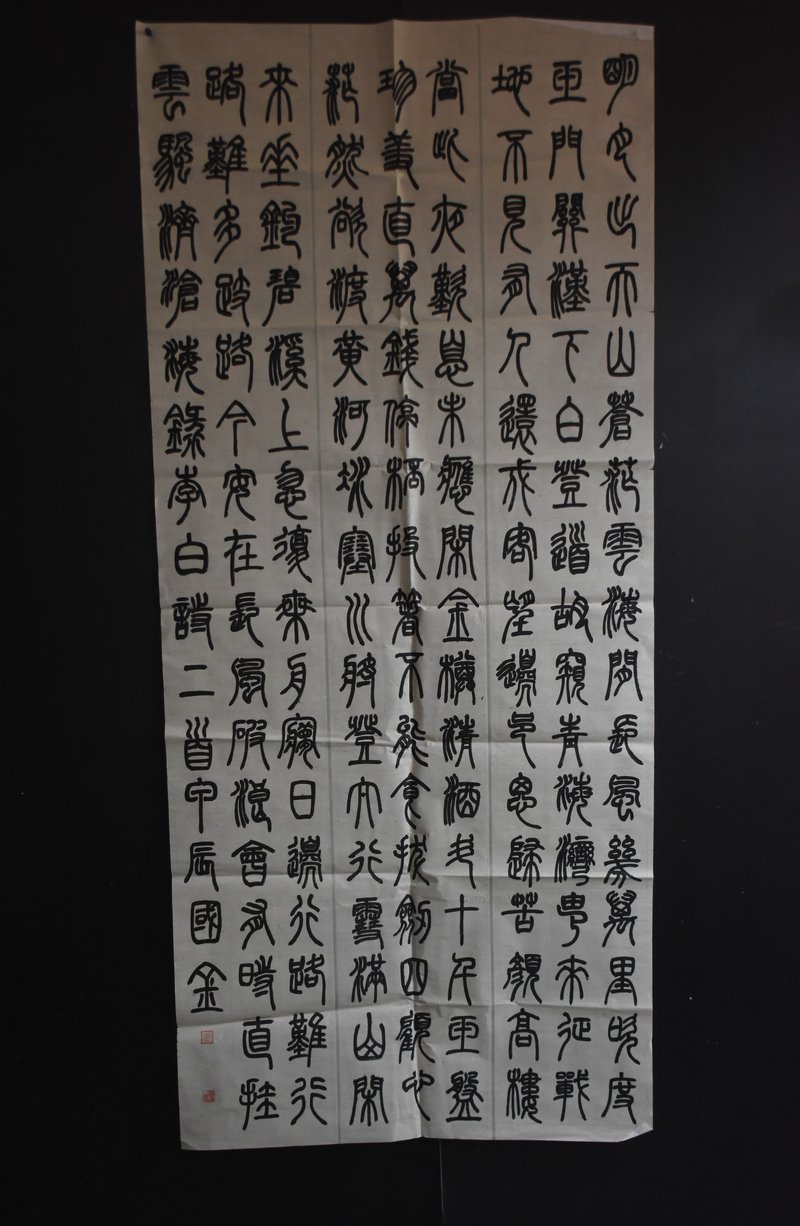 明月出天山蒼茫雲海間長風幾萬里吹度
玉門關漢下白登道胡窺青海灣由來征戰
地不見有人還戍客望邊邑思歸苦顏高樓
當此夜歎息未應閑金樽清酒斗十千玉盤
珍羞直萬錢停杯投箸不能食拔劍四顧心
茫然欲渡黃河冰塞川將登太行雪滿山閑
來垂釣碧溪上忽復乘舟夢日邊行路難行
路難多歧路今安在長風破浪會有時直挂
雲颿濟滄海錄李白詩二首甲辰國金